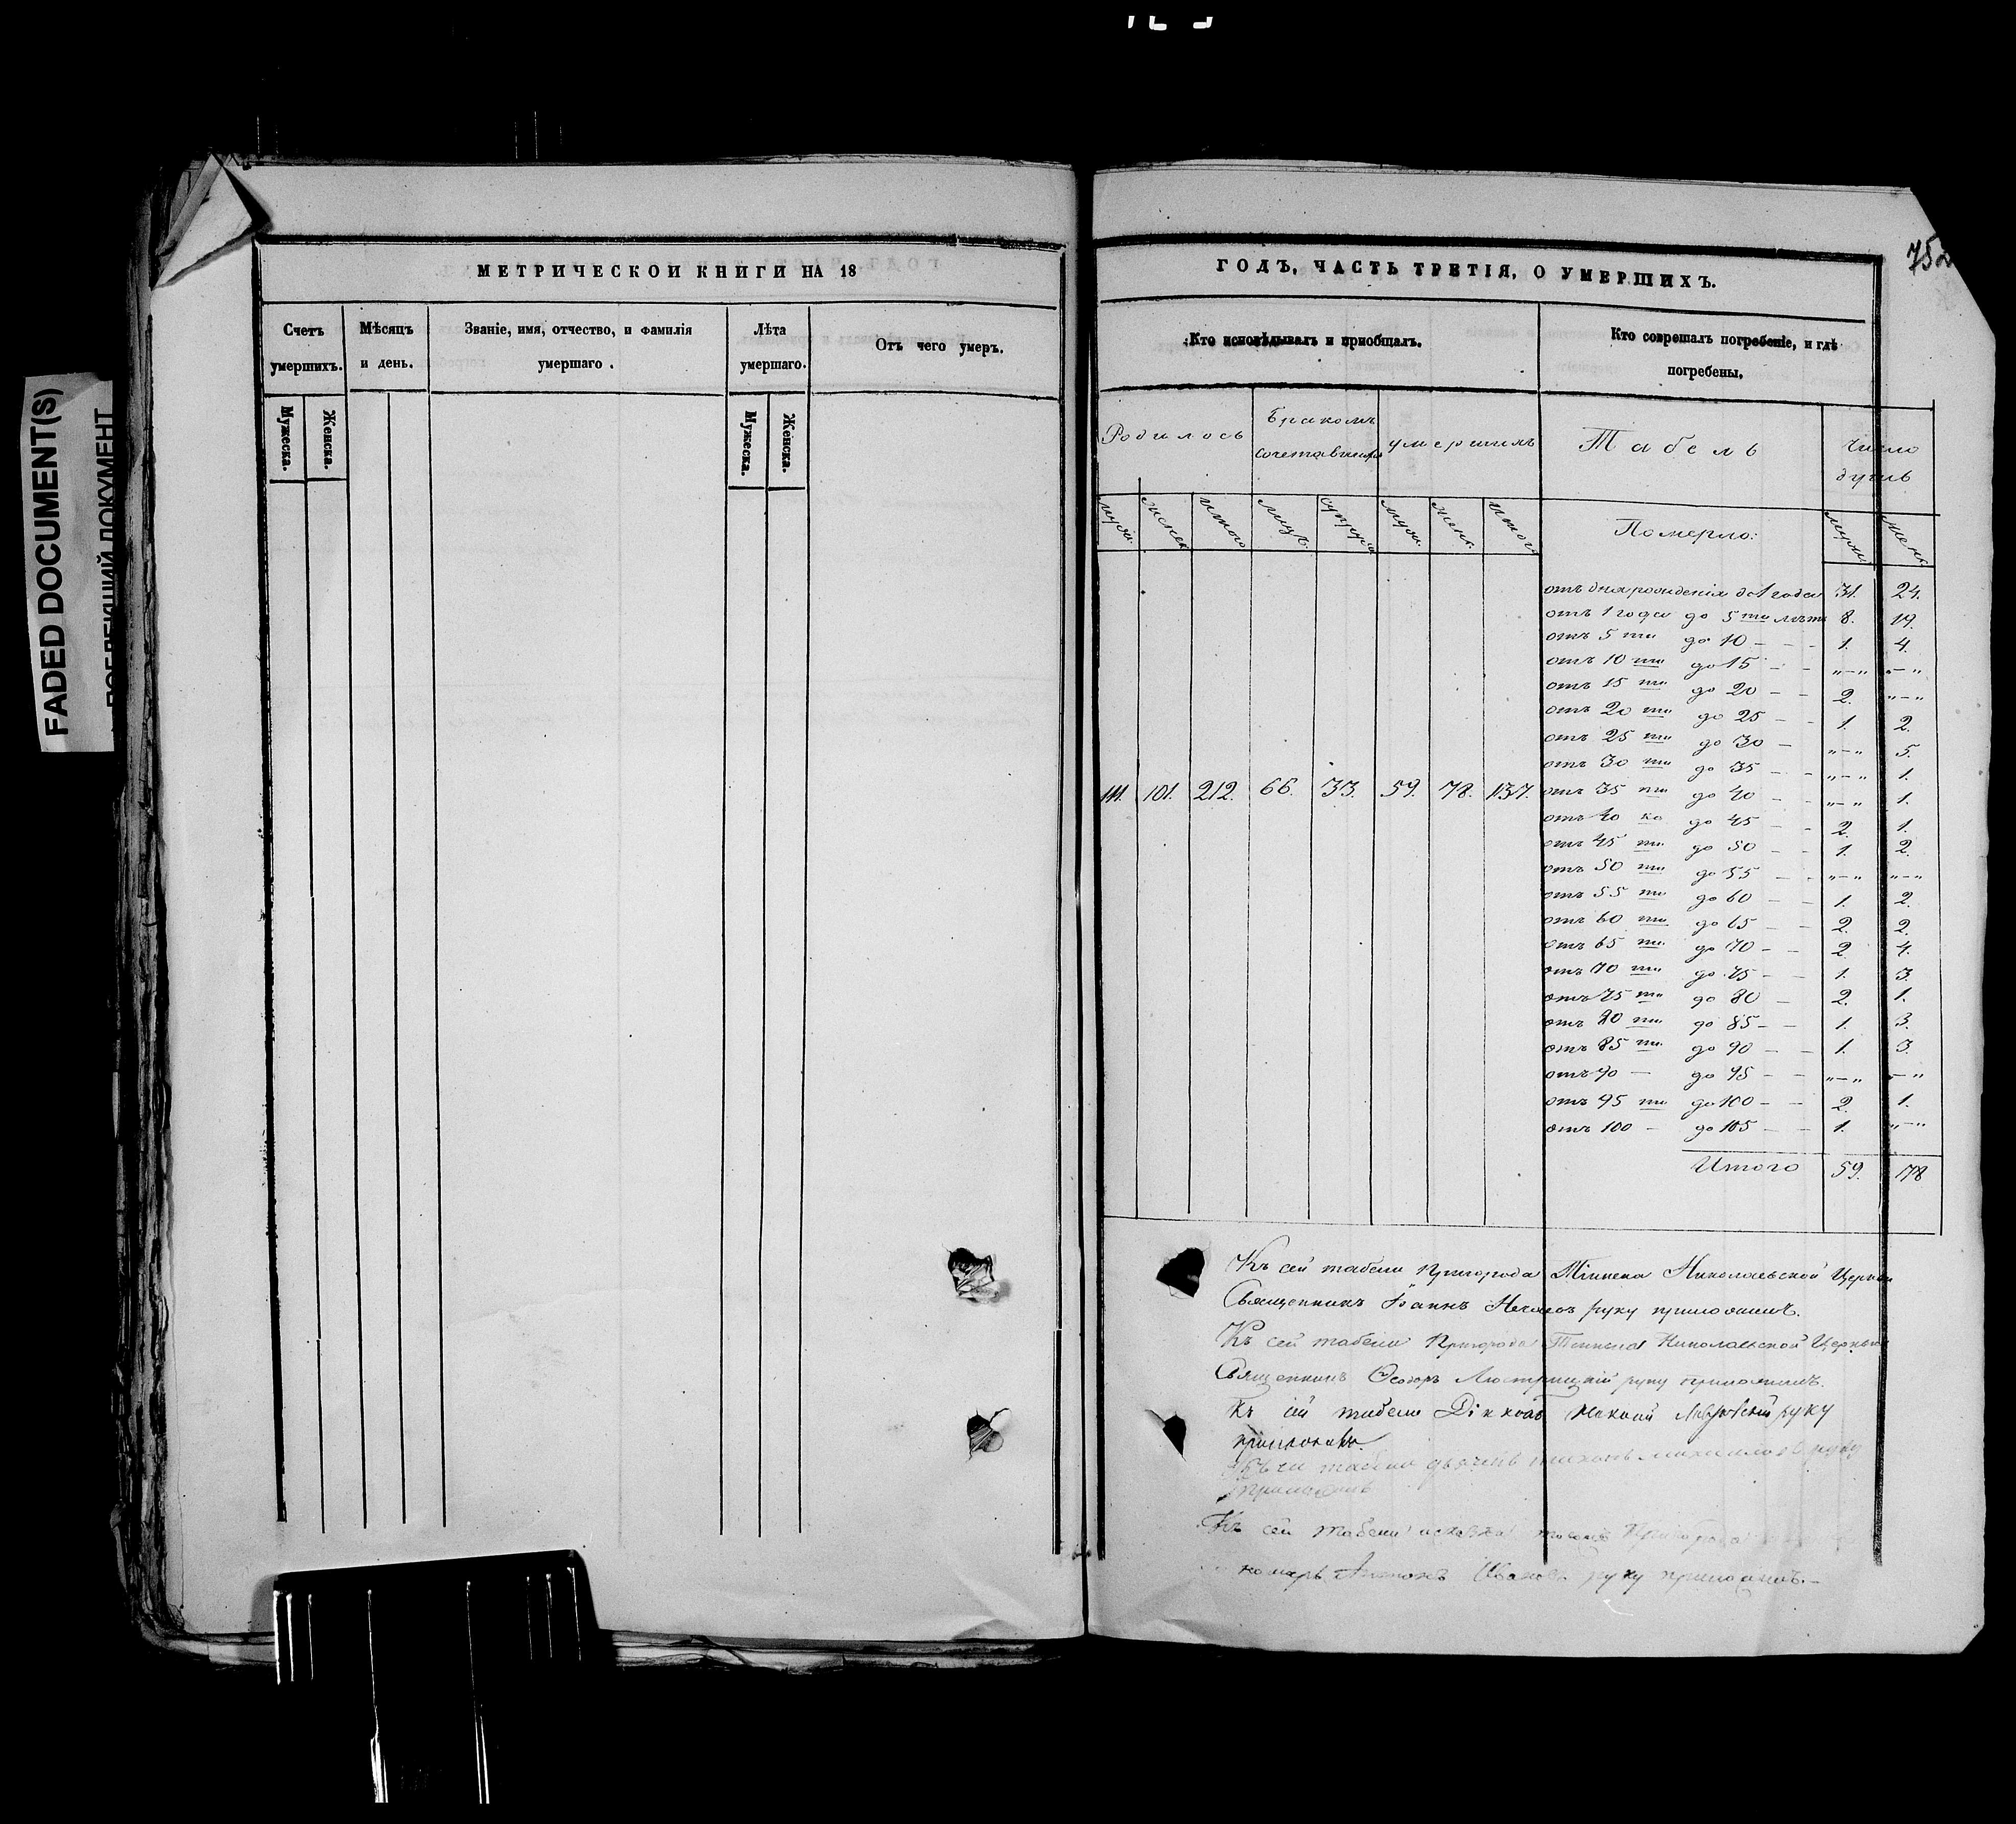 FADED DOCUMENT(S)
ДОКУМЕНТ
МЕТРИЧЕСКОИ КНИГИ НА 18
Счетъ умершихъ.
Мужеска.
Женска.
Мѣсяцъ и день.
Званіе, имя, отчество, и фамилія умершаго.
Лѣта умершаго.
Мужеска.
Женска.
Отъ чего умеръ.
752
ГОДЪ, ЧАСТЬ ТРЕТІЯ, О УМЕРШИХЪ.
Кто исповѣдывалъ и пріобщалъ.
Кто совершалъ погребеніе, и гдѣ погребены,
Родилось
Бракомъ
умершихъ
Табель
Число душъ
итого
Померло:
111. 101. 212. 66. 33. 59. 78. 137.
отъ дня рожденія до 1 года 31. 24.
отъ 1 года до 5ти лѣтъ 8. 19.
отъ 5ти до 10 - - - 1. 4.
отъ 10ти до 15 - - „-„ „-„
отъ 15ти до 20 - - 2. „-„
отъ 20ти до 25 - - 1. 2.
отъ 25ти до 30 - „-„ 5.
отъ 30ти до 35 - - „-„ 1.
отъ 35ти до 40 - - „-„ 1.
отъ 40ка до 45 - - 2. 1.
отъ 45ти до 50 - - 1. 2.
отъ 50ти до 55 - - „-„ „-„
отъ 55ти до 60 - - 1. 2.
отъ 60ти до 65 - - 2. 2.
отъ 65ти до 70 - - 2. 4.
отъ 70ти до 75 - - 1. 3.
отъ 75ти до 80 - 2. 1.
отъ 80ти до 85 - - 1. 3.
отъ 85ти до 90 - - 1. 3.
отъ 90 - до 95 - - „-„ „-„
отъ 95ти до 100 - - 2. 1.
отъ 100 - до 105 - - 1. „-„
Итого 59. 78
Къ сей табели Пригорода Тіинска Николаевской Церкви
Священникъ Іоаннъ руку приложилъ.
Къ сей табели Пригорода Тіинска Николаевской Церкви
Священникъ Ѳеодоръ руку приложилъ.
Къ сей табели Діяконъ руку
приложилъ.
табели руку
приложилъ
Къ сей табели
Ивановъ руку приложилъ.-